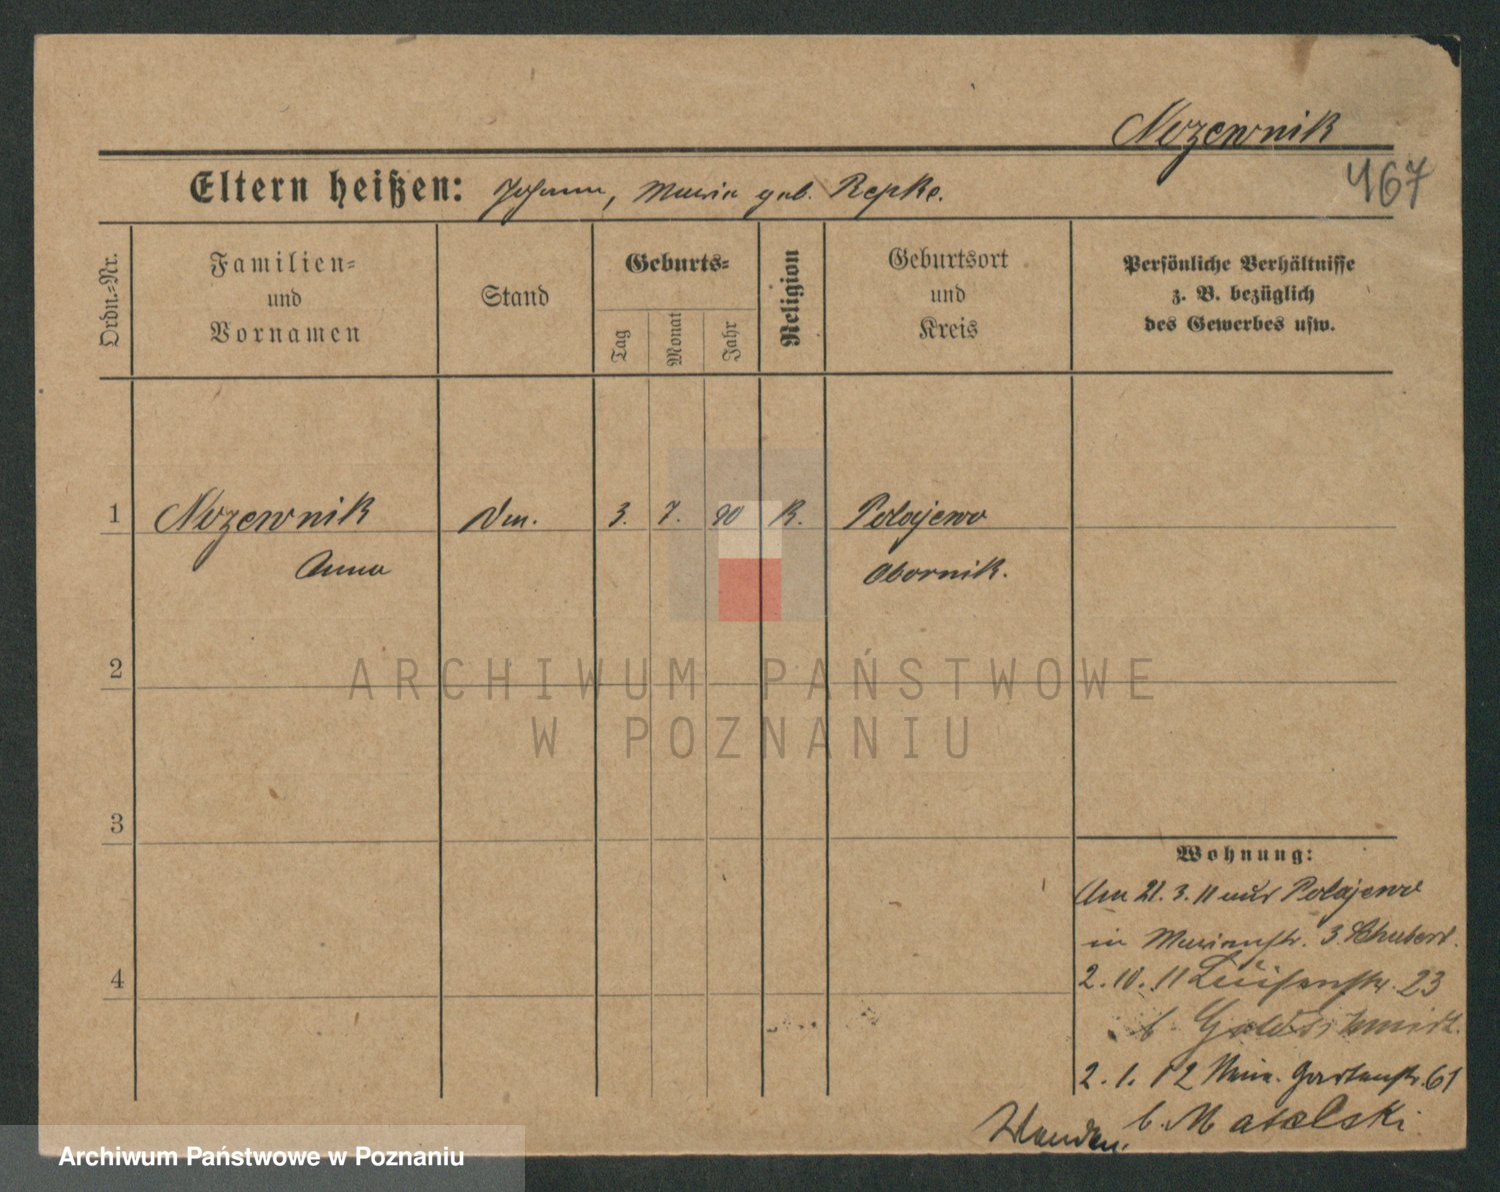 Nozewnik
467
Eltern heißen: Johann, Maria geb. Repke.
Ordn.-Nr.
Familien-
und
Vornamen
Stand
Geburts-
Tag
Monat
Jahr
Religion
Geburtsort
und
Kreis
Persönliche Verhältnisse
z. B. bezüglich
des Gewerbes usw.
1 Nozewnik Dm. 3. 7. 90 K. Polajewo
Anna Obornik.
2
3
4
ARCHIWUM PAŃSTWOWE
W POZNANIU
Wohnung:
Am 21. 3. 11 aus Polajewo
in Marienstr. 3. Schubert.
2. 10. 11 Luisenstr. 23
b. Goldschmidt.
2. 1. 12 Gartenstr. 61
b. Matelski
Archiwum Państwowe w Poznaniu